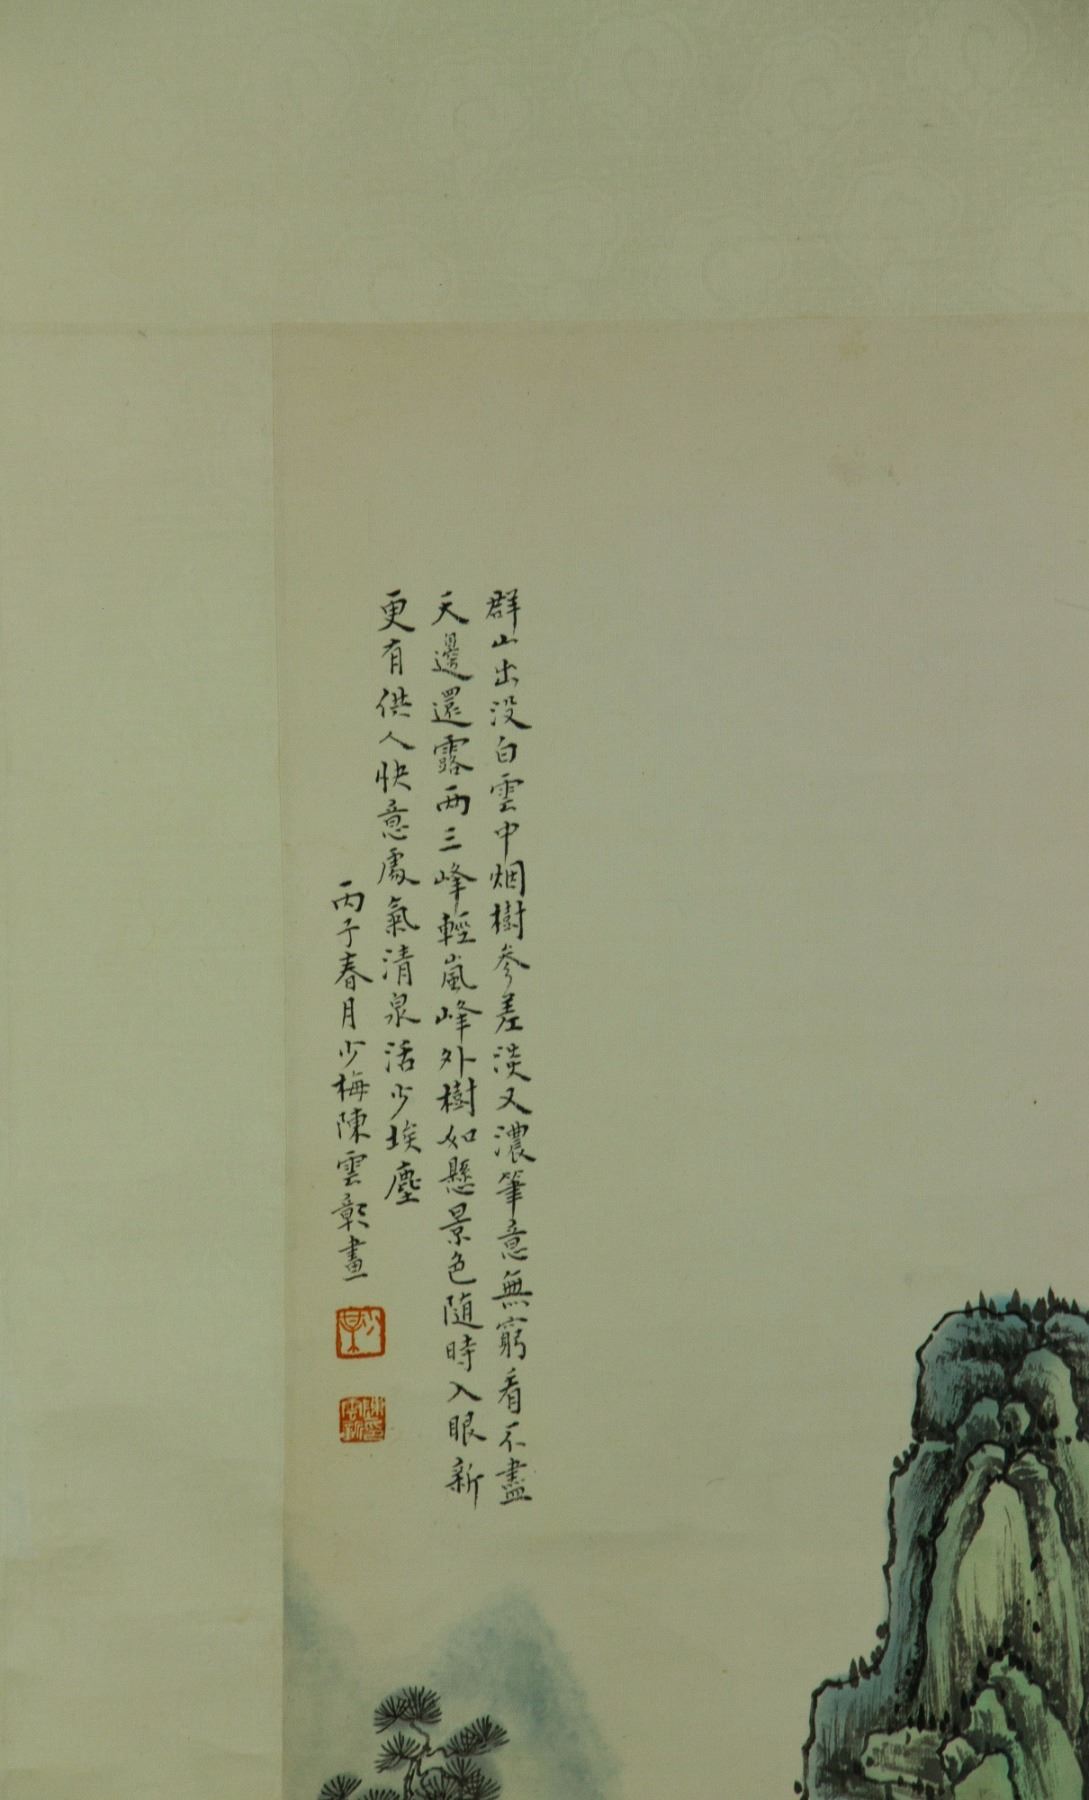 群山出没白雲中烟樹参差淡又濃筆意無窮看不盡
天邊還露两三峰輕嵐峰外樹如懸景色随時入眼新
更有供人快意處氣清泉活少埃塵
丙子春月少梅陳雲彰畫
少某
陳印雲彰